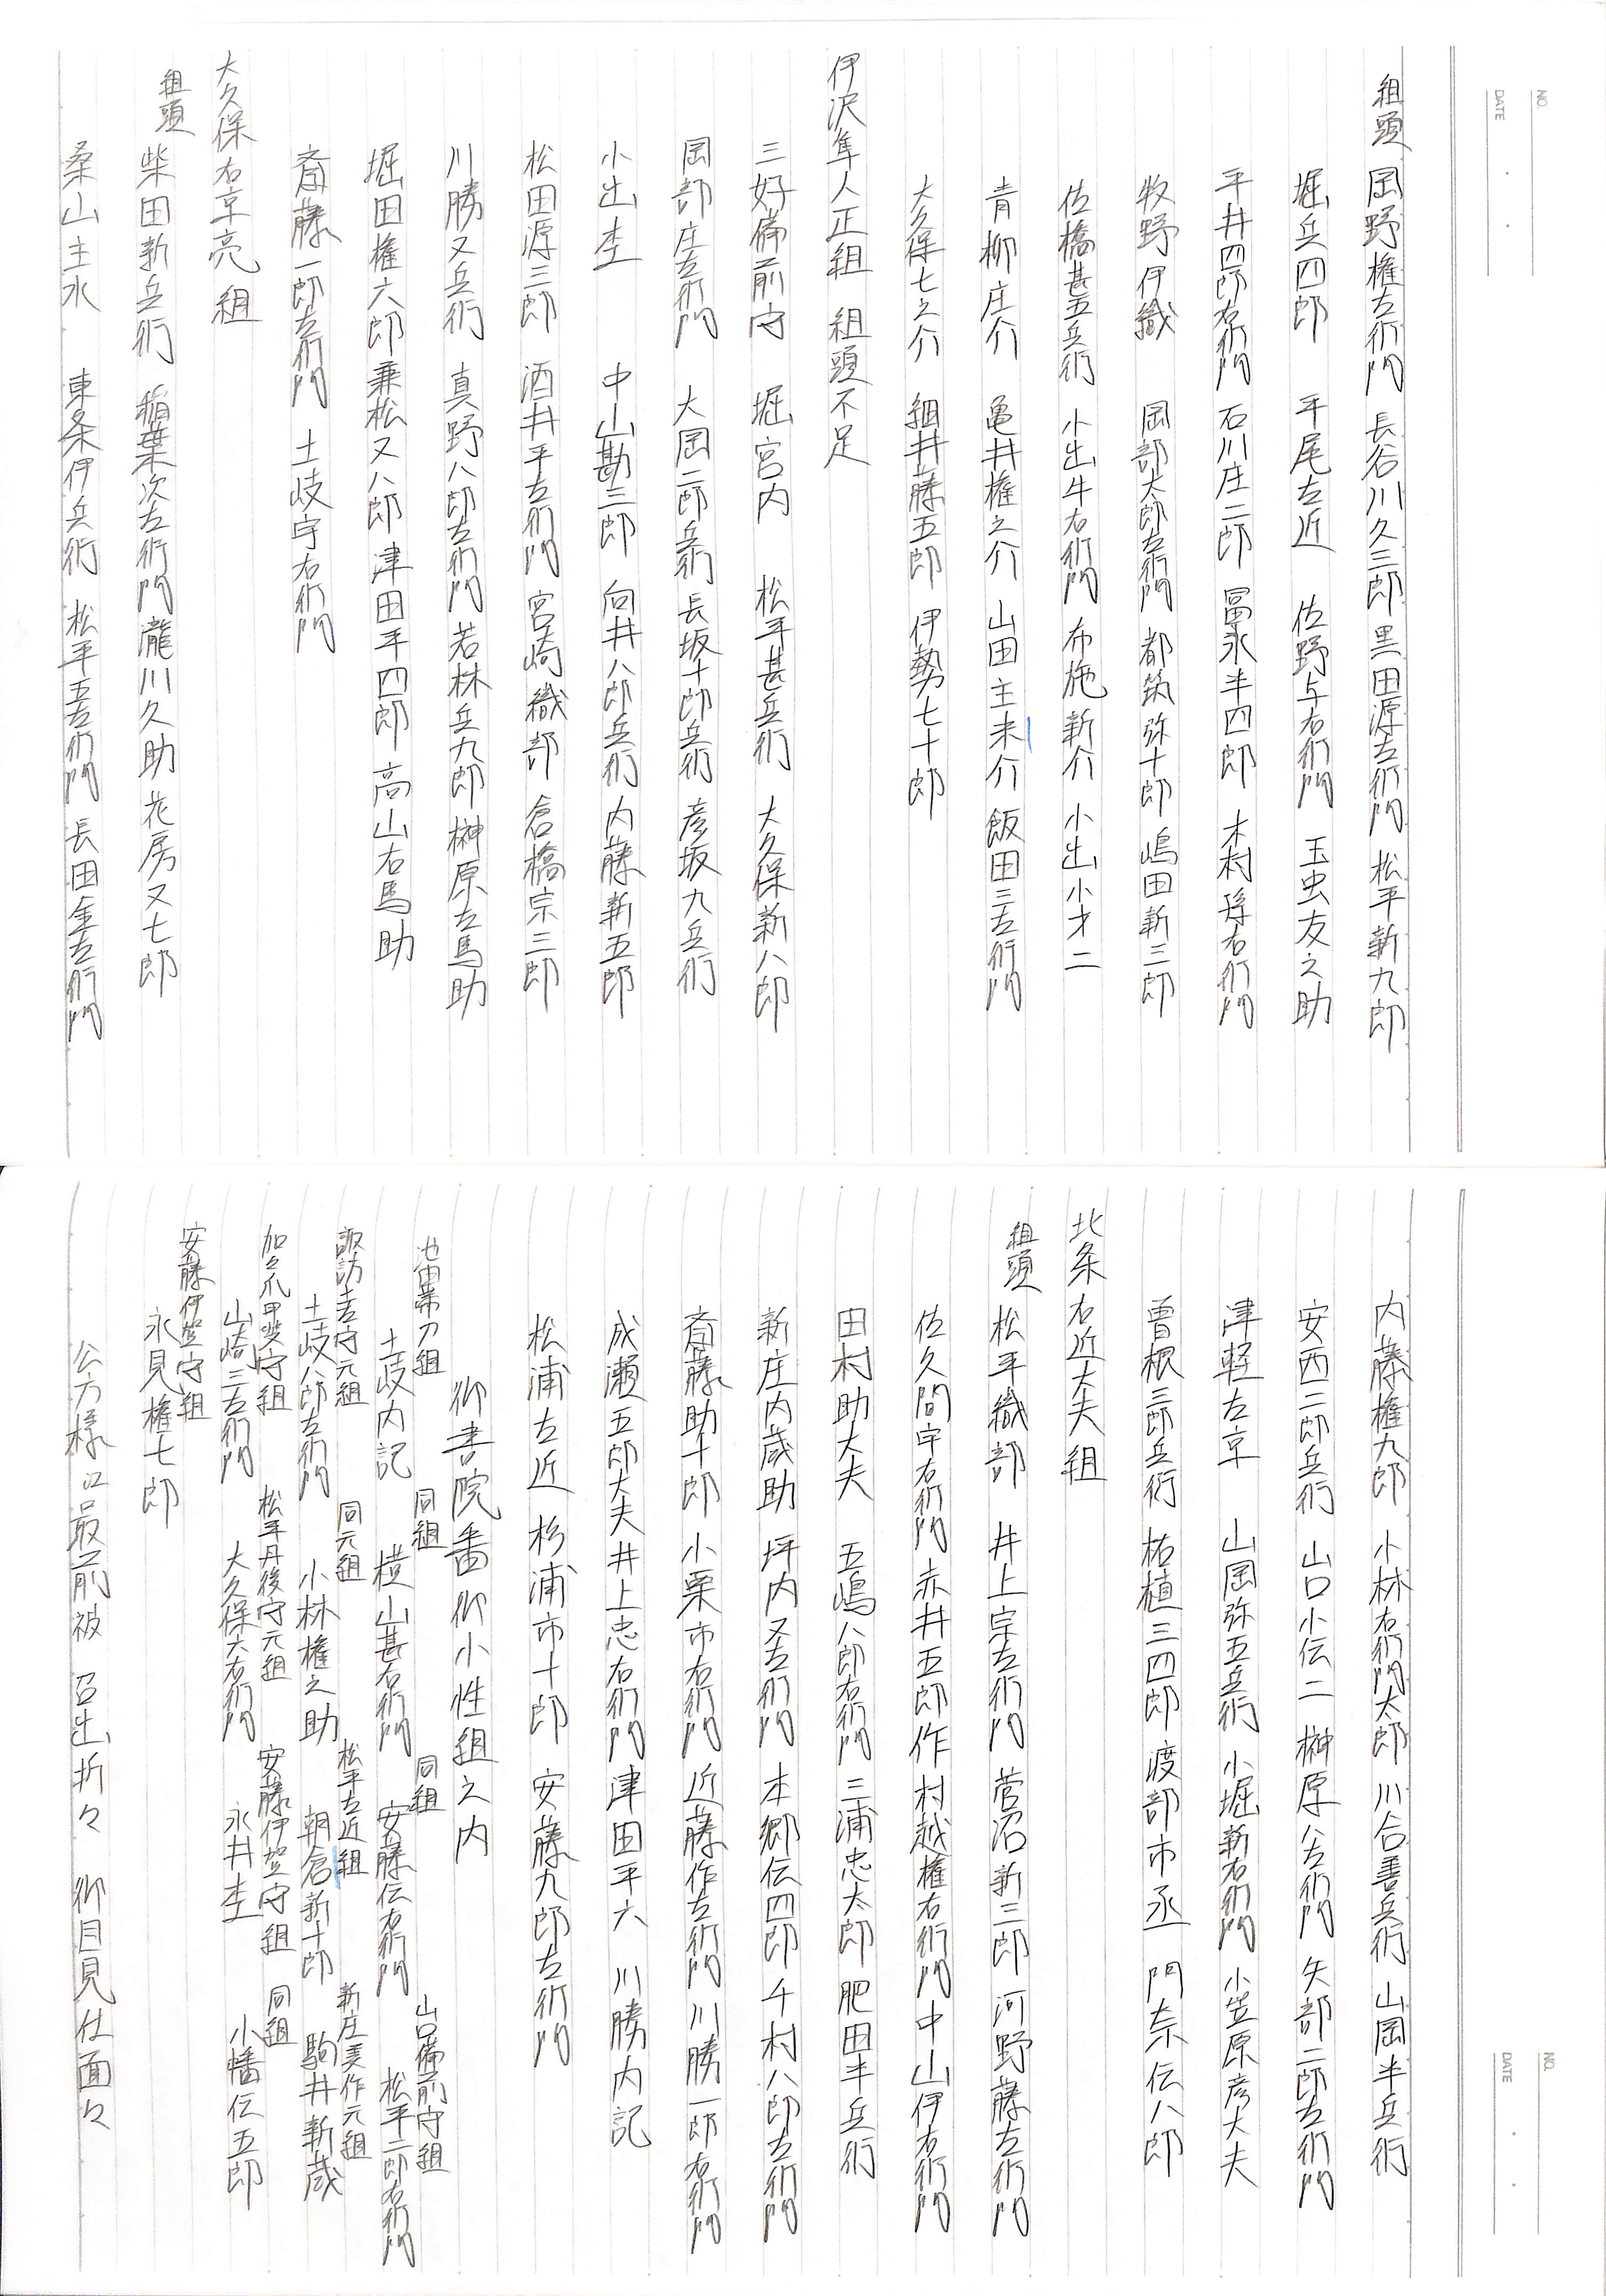 NO.
DATE
組頭 岡野権左衛門 長谷川久三郎 黒田源左衛門 松平新九郎
堀兵四郎 平尾左近 佐野与右衛門 玉虫友之助
平井四郎右衛門 石川庄二郎 冨永半四郎 木村孫右衛門
牧野伊織 岡部太郎左衛門 都筑弥十郎 嶋田新三郎
佐橋甚五兵衛 小出半右衛門 布施新介 小出小才二
青柳庄介 亀井権之介 山田主未介 飯田三左衛門
大久保七之介 細井藤五郎 伊勢七十郎
伊沢隼人正組 組頭不足
三好備前守 堀宮内 松平甚兵衛 大久保新八郎
岡部庄左衛門 大岡二郎兵衛 長坂十郎兵衛 彦坂九兵衛
小出杢 中山勘三郎 向井八郎兵衛 内藤新五郎
松田源三郎 酒井平左衛門 宮崎織部 倉橋宗三郎
川勝又兵衛 真野八郎左衛門 若林兵九郎 榊原左馬助
堀田権六郎 兼松又八郎 津田平四郎 高山右馬助
斎藤一郎左衛門 土岐宇右衛門
大久保右京亮組
組頭 柴田新兵衛 稲葉次左衛門 瀧川久助 花房又七郎
桑山主水 東条伊兵衛 松平五左衛門 長田金左衛門
NO.
DATE
内藤権九郎 小林右衛門太郎 川合善兵衛 山岡半兵衛
安西二郎兵衛 山口小伝二 榊原八左衛門 矢部二郎左衛門
津軽左京 山岡弥五兵衛 小堀新右衛門 小笠原彦大夫
曽根三郎兵衛 柘植三四郎 渡部市丞 門奈伝八郎
北条右近大夫組
組頭 松平織部 井上宗左衛門 菅沼新三郎 河野藤左衛門
佐久間宇右衛門 赤井五郎作 村越権右衛門 中山伊右衛門
田村助大夫 五嶋八郎右衛門 三浦忠太郎 肥田半兵衛
新庄内蔵助 坪内又左衛門 本郷伝四郎 千村八郎左衛門
斎藤助十郎 小栗市右衛門 近藤作左衛門 川勝一郎右衛門
成瀬五郎大夫 井上忠右衛門 津田平六 川勝内記
松浦左近 杉浦市十郎 安藤九郎左衛門
御書院番御小性組之内
池田帯刀組 同組 同組 山口備前守組
土岐内記 横山甚右衛門 安藤伝右衛門 松平二郎右衛門
諏訪若守元組 同元組 松平左近組 新庄美作元組
土岐八郎左衛門 小林権之助 朝倉新十郎 駒井新蔵
加々爪甲斐守組 松平丹後守元組 安藤伊賀守組 同組
山崎三左衛門 大久保六右衛門 永井杢 小幡伝五郎
安藤伊賀守組
永見権七郎
公方様江最前被 召出折々 御目見仕面々